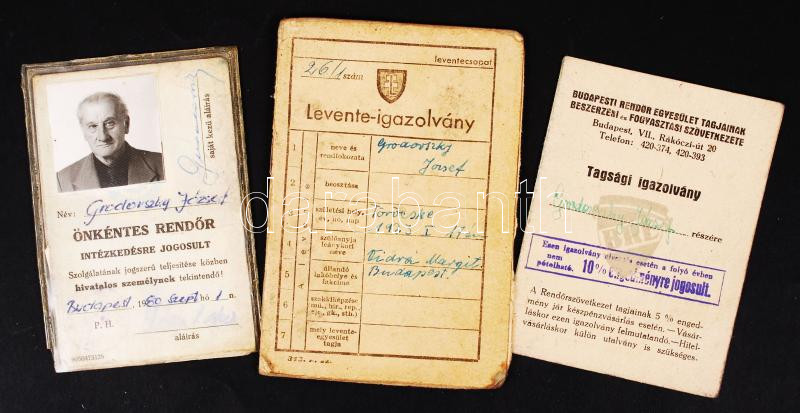 saját kezű aláírás
Név: Grodovszky József
ÖNKÉNTES RENDŐR
INTÉZKEDÉSRE JOGOSULT
Szolgálatának jogszerű teljesítése közben
hivatalos személynek tekintendő!
Budapest, 1960 szept hó 1 n.
P. H.
aláírás
leventecsapat
26/1 szám
Levente-igazolvány
1 neve és rendfokozata Grodovszky József
2 beosztása
3 születési hely, év, hó, nap
4 szülőanyja leánykori neve Vidra Margit
5 állandó lakóhelye és lakcíme Budapest
6 szakkiképzése (mű., hír., rep., ejt., gk., stb.)
7 mely levente-egyesület tagja
A levente
313. r. sz.
BUDAPESTI RENDŐR EGYESÜLET TAGJAINAK
BESZERZÉSI és FOGYASZTÁSI SZÖVETKEZETE
Budapest, VII., Rákóczi-út 20
Telefon: 420-374, 420-393
Tagsági igazolvány
részére
Ezen igazolvány elvesztés esetén a folyó évben
nem pótolható. 10% engedményre jogosult.
A Rendőrszövetkezet tagjainak 5 % enged-
mény jár készpénzvásárlás esetén. —Vásár-
láskor ezen igazolvány felmutatandó. —Hitel-
vásárláskor külön utalvány is szükséges.
darabanth